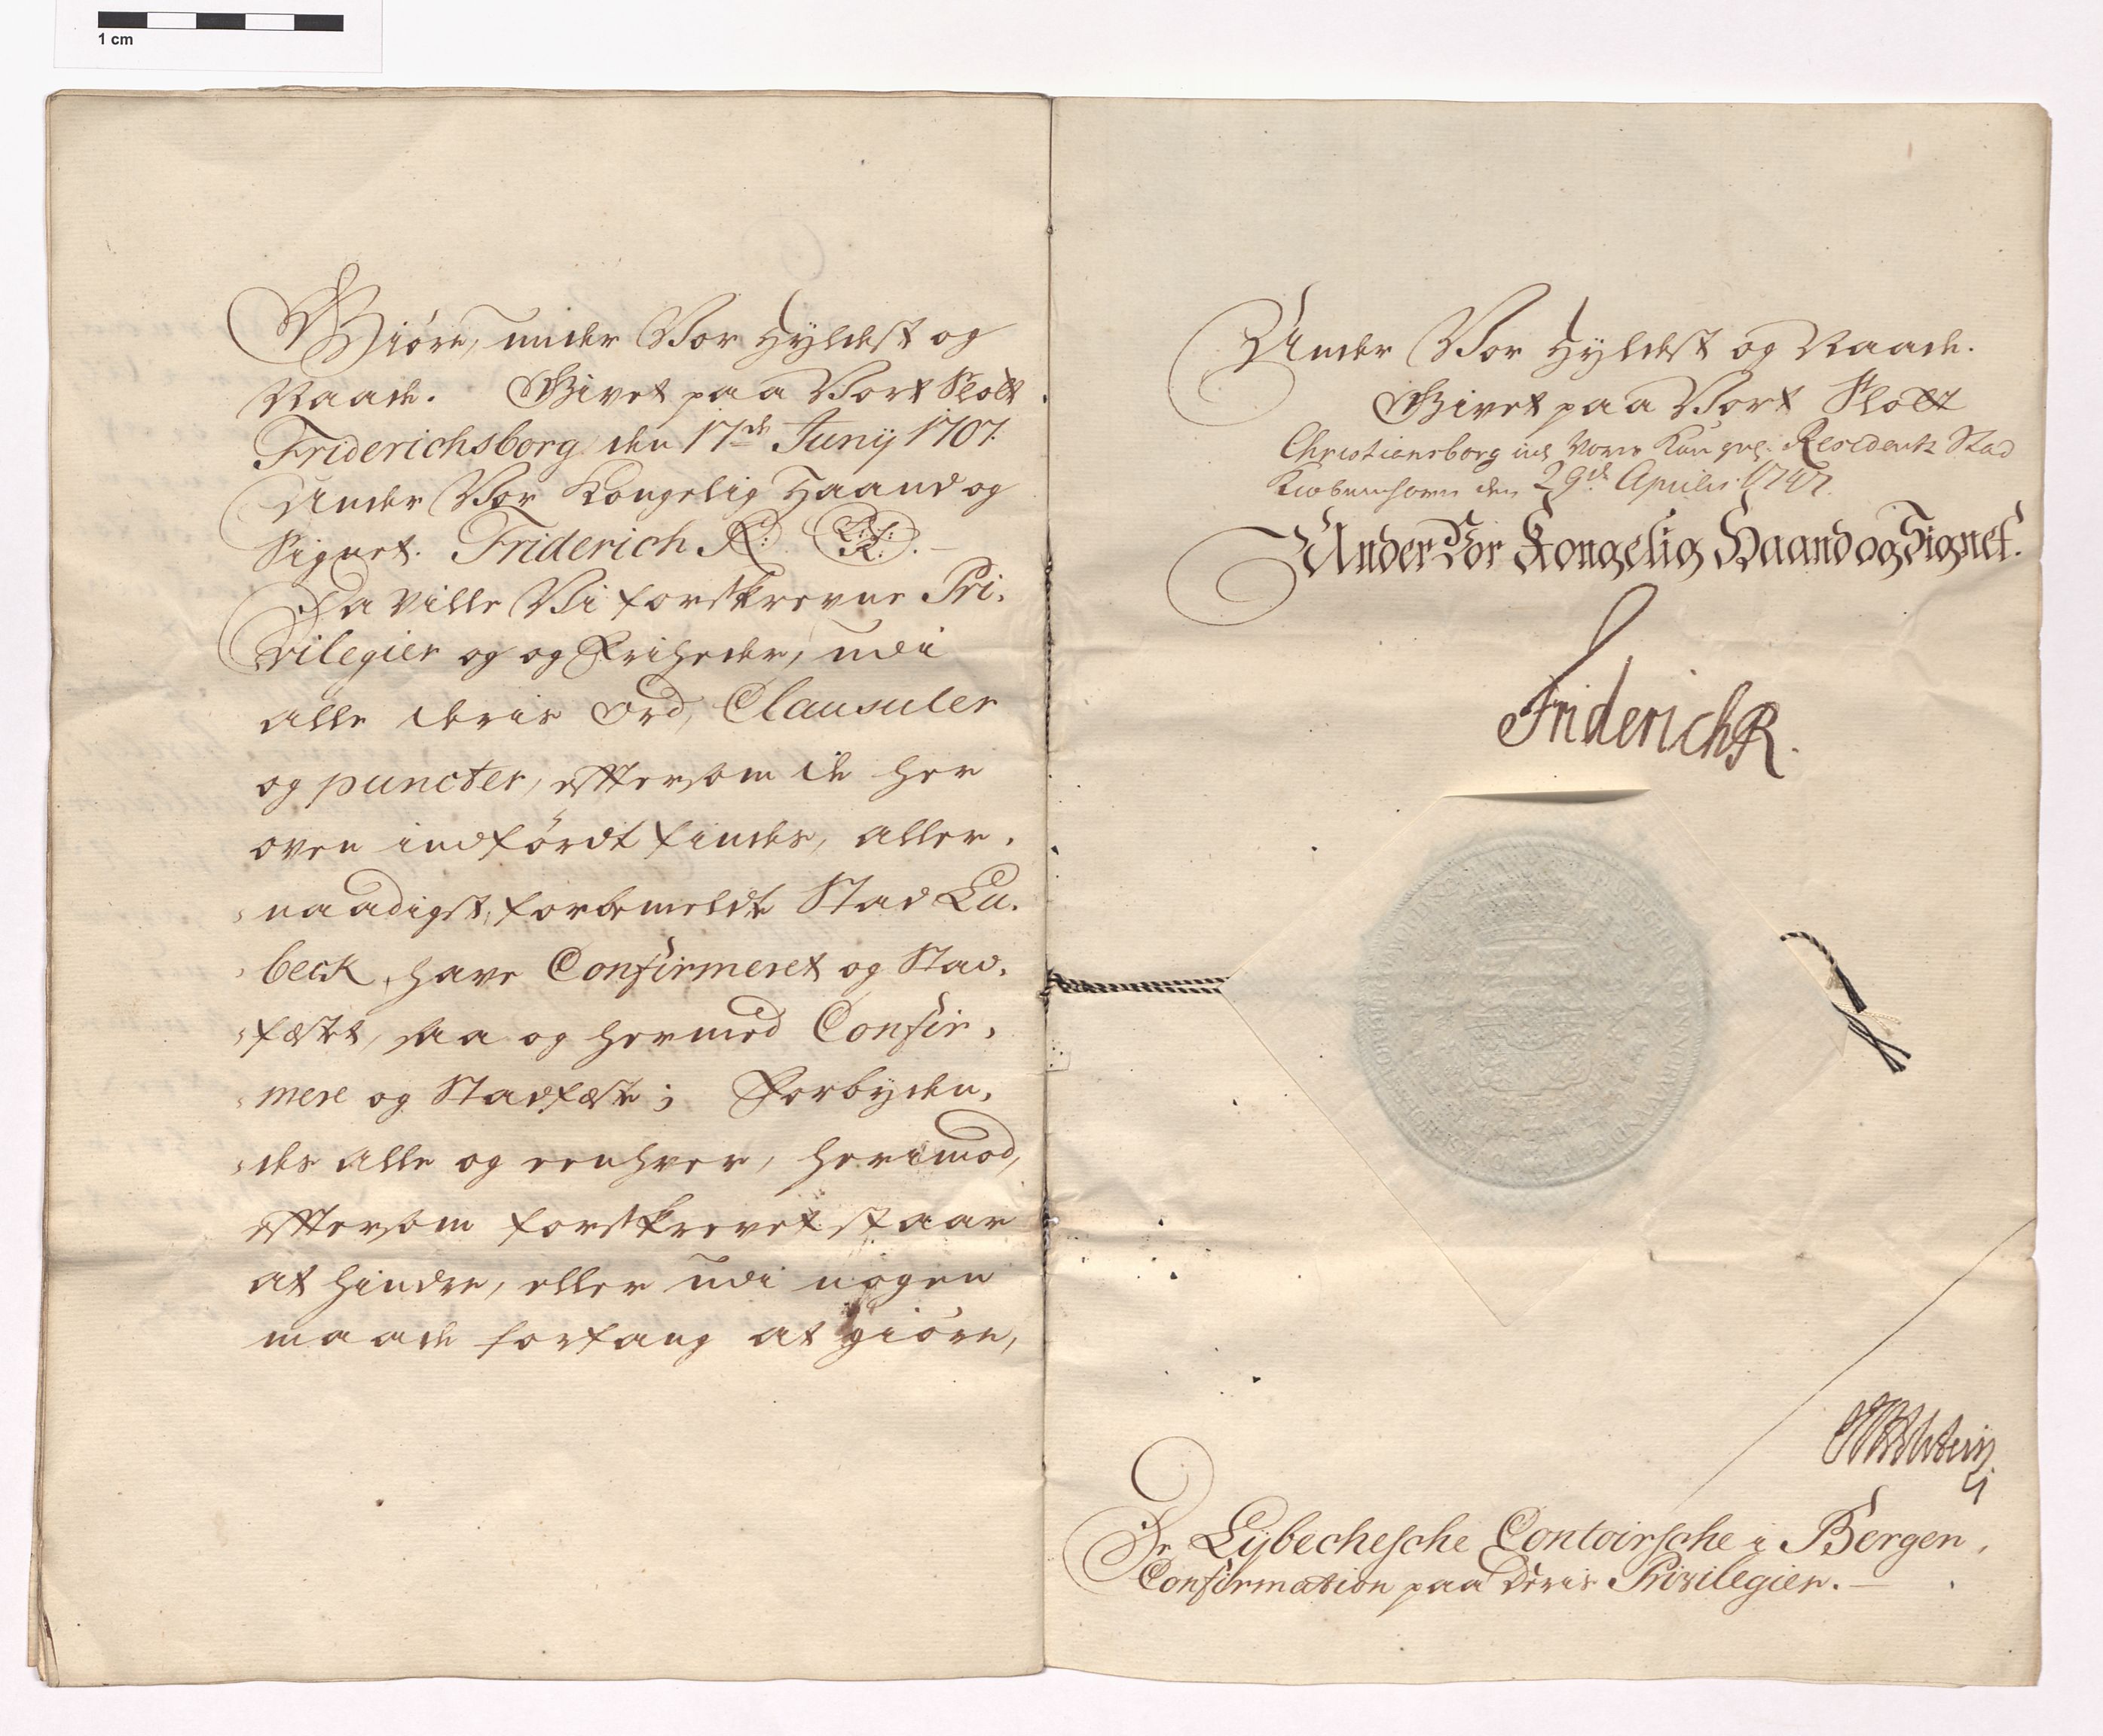 1 cm
Giöre, under Vor Hyldest og
Naade. Givet paa Vort Slott
Friderichsborg den 17de Junij 1707.
Under Vor Kongelig Haand og
Signet. Friderich R. (L.S. R.)
Da ville Vi forskrevne Pri-
vilegier og og Friheder, udi
alle deris Ord, Clausuler
og puncter, eftersom de her
oven indfördt findes, aller-
naadigst, forbemeldte Stad Lu-
beck, have Confirmeret og Stad-
fæstet, saa og hermed Confir-
mere og Stadfæste; Forbyden-
des alle og eenhver, herimod,
eftersom forskrevet staar
at hindre, eller udi nogen
maade forfang at giöre,
Under Vor Hyldest og Naade.
Givet paa Vort Slott
Christiansborg udj Vores Kongel: Residentz Stad
Kiobenhavn den 29de Aprilis 1747.
Under Vor Kongelig Haand og Signet.
Friderich R.
De Lybechesche Contoirsche i Bergen,
Confirmation paa deris Privilegier.